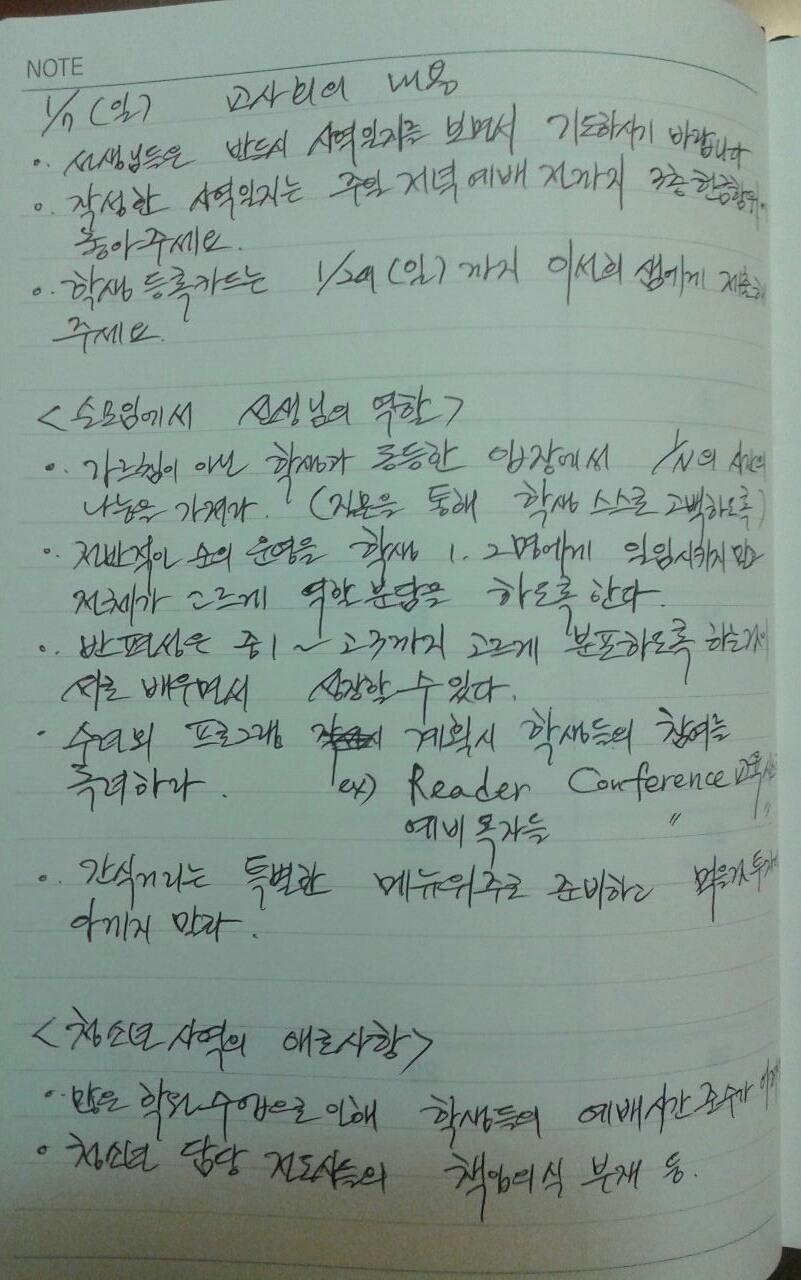 NOTE
1/7 (일) 교사회의 내용
선생님들은 반드시 사역일지를 보면서 기도하시기 바랍니다
작성한 사역일지는 주일 저녁예배 전까지 3층 헌금함위에
놓아주세요.
학생 등록카드는 (일)까지 이선희 샘에게 제출해
주세요.
<소모임에서 선생님의 역할>
가르침이 아닌 학생과 동등한 입장에서 1/N의 시간의
나눔을 가져라. (질문을 통해 학생 스스로 고백하도록)
전반적인 순의 운영을 학생 1. 2명에게 일임시키지 말고
전체가 고르게 역할분담을 하도록 한다.
반편성은 중1~고3까지 고르게 분포하도록 하는것이
서로 배우면서 성장할 수 있다.
수련회 프로그램 계획시 학생들의 참여를
독려하라. ex) Reader Conference 교육
예비목자들 〃 〃
간식거리는 특별한 메뉴위주로 준비하고 먹을것 투자에
아끼지 말라.
<청소년 사역의 애로사항>
많은 학원수업으로 인해 학생들의 예배시간 준수가
청소년 담당 전도사들의 책임의식 부재 등.